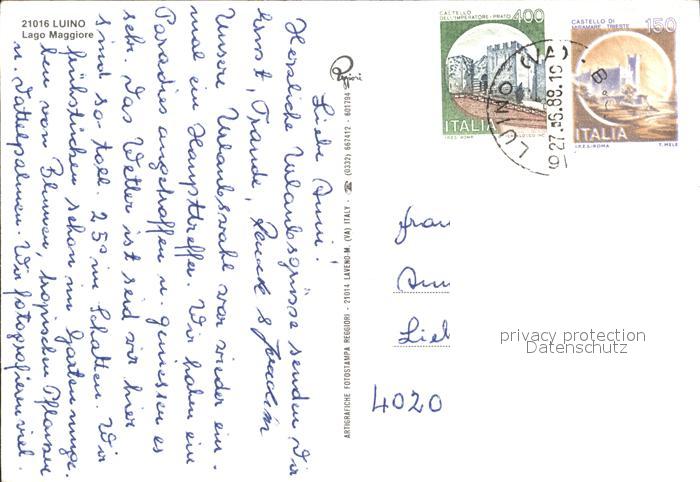 21016 LUINO
Lago Maggiore
Liebe Anni!
Herzliche Urlaubsgrüsse senden Dir
Ernst, Traude, & Joachim
Unsere Urlaubswahl war wieder ein-
mal ein Haupttreffer. Wir haben ein
Paradies angetroffen u. geniessen es
sehr. Das Wetter ist seid wir hier
sind so toll. 25° im Schatten. Wir
frühstücken schon im Garten umge-
ben von Blumen, tropischen Pflanzen
u. Dattelpalmen. Wir fotografieren viel.
ARTIGRAFICHE FOTOSTAMPA REGGIORI - 21014 LAVENO-M. (VA) ITALY - ☎ (0332) 667412 - 601794
CASTELLO
DELL'IMPERATORE - PRATO 400
ITALIA
I.P.Z.S. ROMA
CASTELLO DI
MIRAMARE TRIESTE 150
ITALIA
I.P.Z.S. - ROMA T. MELE
LUINO
27.06.88.
Frau
Ann
Lieb
4020
privacy protection
Datenschutz